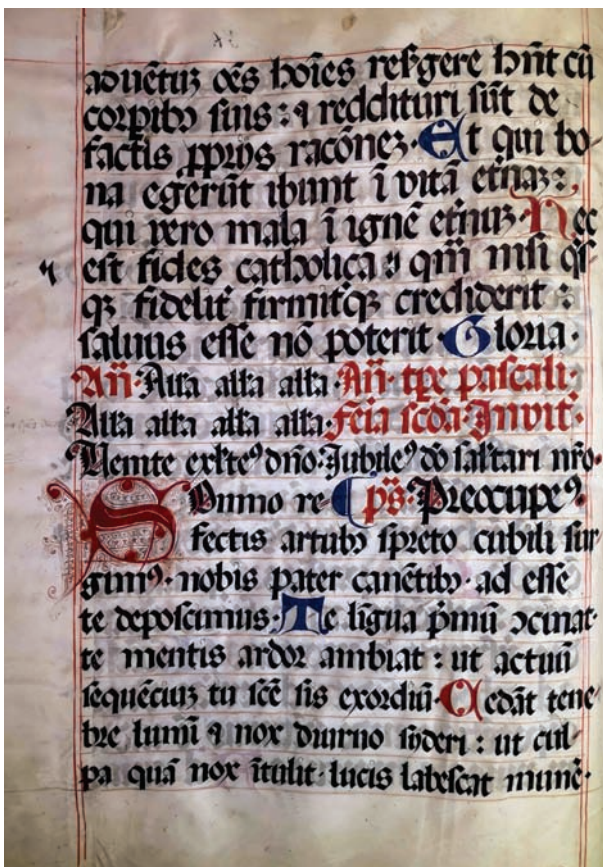 aduētuȝ oēs hoīes resṡgere hn̄t cū
corpibꝰ suis : ⁊ reddituri sūt de
factis ꝓprijs racōneȝ · Et qui bo-
na egerūt ibunt ī vitā etnāȝ :
qui vero mala ī ignē etnuȝ · Nec
est fides catholica : qm̄ nisi qs̄
qȝ fidelit̄ firmit̄qȝ crediderit :
saluus esse nō poterit · Gloria ·
An̄ · Alla alla alla · An̄ · tpe pascali ·
Alla alla alla alla · Feīa scd̄a · Inuit̄ ·
Uenite exlteꝰ dn̄o · Jubileꝰ do saltari nr̄o ·
Somno re ps̄ · Preocupeꝰ ·
fectis artubꝰ spreto cubili sur
gimꝰ · nobis pater canētibꝰ · ad esse
te deposcimus · Te līgua pmū ɔcinat ·
te mentis ardor ambiat : ut actuū
sequēciuȝ tu scē sis exordiū · Cedāt tene
bre lumī ⁊ nox diurno syderi : ut cul-
pa quā nox ītulit · lucis labescat munē ·